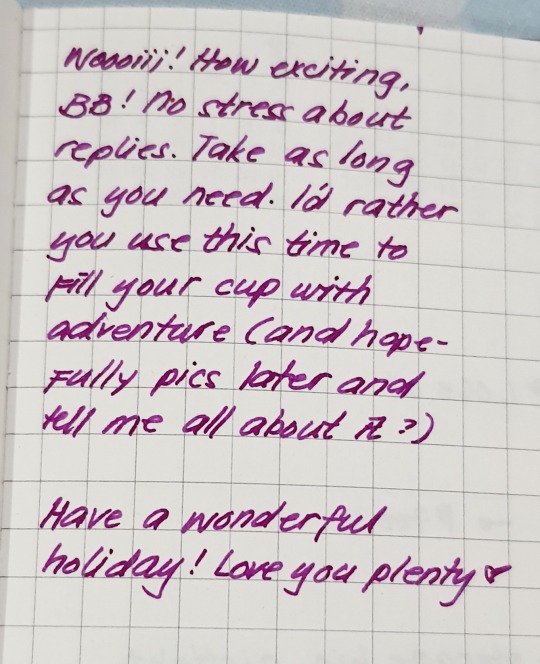 Noooiii! How exciting,
BB! No stress about
replies. Take as long
as you need. I'd rather
you use this time to
fill your cup with
adventure (and hope-
fully pics later and
tell me all about it?)
Have a wonderful
holiday! Love you plenty ♥